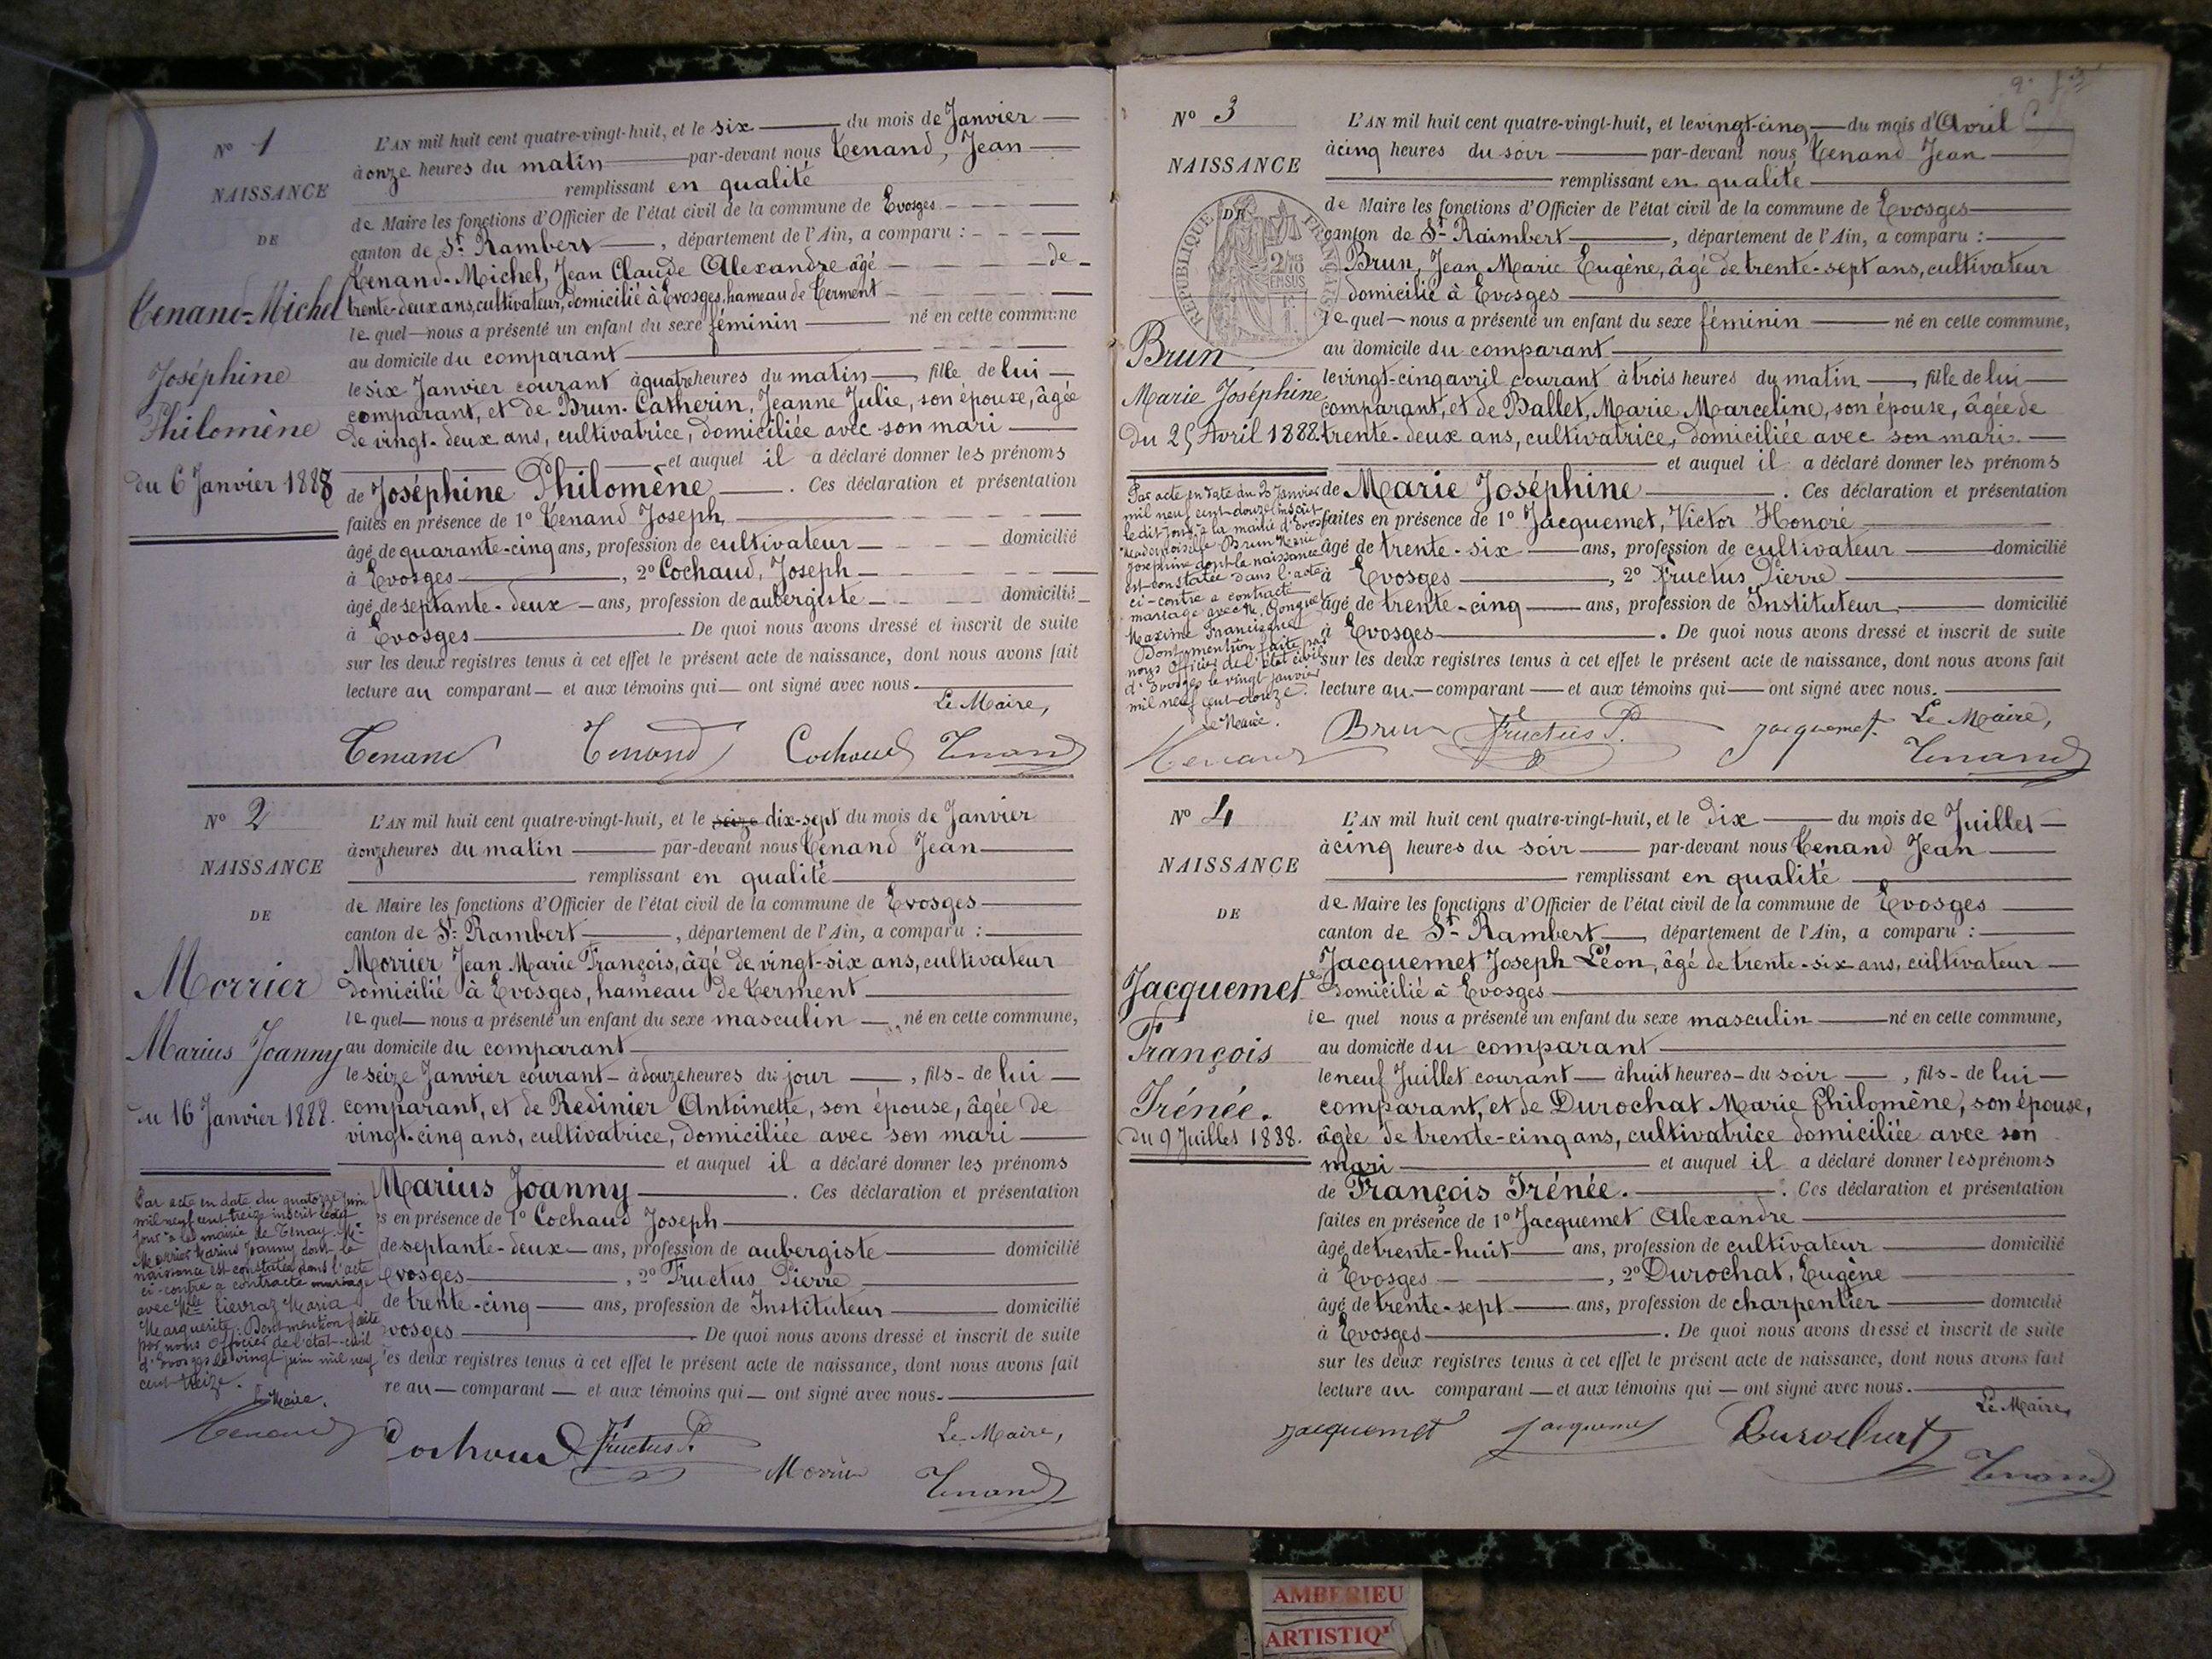 N° 1
NAISSANCE
DE
Tenand-Michel
Joséphine
Philomène
du 6 Janvier 1888
L'AN mil huit cent quatre-vingt-huit, et le six du mois de Janvier
à onze heures du matin par-devant nous Tenand, Jean
remplissant en qualité
de Maire les fonctions d'Officier de l'état civil de la commune de Evosges
canton de St Rambert, département de l'Ain, a comparu :
Tenand-Michel, Jean Claude Alexandre âgé de
trente-deux ans, cultivateur, domicilié à Evosges, hameau de Cerment
le quel nous a présenté un enfant du sexe féminin né en cette commune
au domicile du comparant
le six Janvier courant à quatre heures du matin, fille de lui
comparant, et de Brun-Catherin, Jeanne Julie, son épouse, âgée
de vingt-deux ans, cultivatrice, domiciliée avec son mari
et auquel il a déclaré donner les prénoms
de Joséphine Philomène. Ces déclaration et présentation
faites en présence de 1° Tenand Joseph,
âgé de quarante-cinq ans, profession de cultivateur domicilié
à Evosges, 2° Cochaud, Joseph
âgé de septante-deux ans, profession de aubergiste domicilié
à Evosges. De quoi nous avons dressé et inscrit de suite
sur les deux registres tenus à cet effet le présent acte de naissance, dont nous avons fait
lecture au comparant et aux témoins qui ont signé avec nous.
Le Maire,
Tenand Tenand Cochaud Tenand
N° 2
NAISSANCE
DE
Morrier
Marius Joanny
du 16 Janvier 1888.
Par acte en date du quatorze juin
mil neuf cent treize inscrit ledit
jour à la mairie de Tenay, Mr
Morrier Marius Joanny dont la
naissance est constatée dans l'acte
ci-contre a contracté mariage
avec Mlle Lievraz Maria
Marguerite. Dont mention faite
par nous Officier de l'état-civil
d'Evosges le vingt juin mil neuf
cent treize.
Le Maire.
Tenand
L'AN mil huit cent quatre-vingt-huit, et le seize dix-sept du mois de Janvier
à onze heures du matin par-devant nous Tenand Jean
remplissant en qualité
de Maire les fonctions d'Officier de l'état civil de la commune de Evosges
canton de St Rambert, département de l'Ain, a comparu :
Morrier Jean Marie François, âgé de vingt-six ans, cultivateur
domicilié à Evosges, hameau de Cerment
le quel nous a présenté un enfant du sexe masculin né en cette commune,
au domicile du comparant
le seize Janvier courant à douze heures du jour, fils de lui
comparant, et de Redinier Antoinette, son épouse, âgée de
vingt-cinq ans, cultivatrice, domiciliée avec son mari
et auquel il a déclaré donner les prénoms
Marius Joanny. Ces déclaration et présentation
s en présence de 1° Cochaud Joseph
de septante-deux ans, profession de aubergiste domicilié
Evosges, 2° Fructus Pierre
de trente-cinq ans, profession de Instituteur domicilié
vosges. De quoi nous avons dressé et inscrit de suite
es deux registres tenus à cet effet le présent acte de naissance, dont nous avons fait
re au comparant et aux témoins qui ont signé avec nous.
Le Maire,
Cochaud Fructus P. Morrier Tenand
N° 3
NAISSANCE
DE
REPUBLIQUE FRANÇAISE
2/10 EN SUS
Brun
Marie Joséphine
du 25 Avril 1888.
Par acte en date du 20 Janvier
mil neuf cent-douze inscrit
le dit jour à la mairie d'Evosges
Mademoiselle Brun Marie
Joséphine dont la naissance
est constatée dans l'acte
ci-contre a contracté
mariage avec M. Gonguet
Maxime Francisque
Dont mention faite par
nous Officier de l'état civil
d'Evosges le vingt janvier
mil neuf cent-douze.
Le Maire.
Tenand
L'AN mil huit cent quatre-vingt-huit, et le vingt-cinq du mois d'Avril
à cinq heures du soir par-devant nous Tenand Jean
remplissant en qualité
de Maire les fonctions d'Officier de l'état civil de la commune de Evosges
canton de St Raimbert, département de l'Ain, a comparu :
Brun, Jean Marie Eugène, âgé de trente-sept ans, cultivateur
domicilié à Evosges
le quel nous a présenté un enfant du sexe féminin né en cette commune,
au domicile du comparant
le vingt-cinq avril courant à trois heures du matin, fille de lui
comparant, et de Ballet, Marie Marceline, son épouse, âgée de
trente-deux ans, cultivatrice, domiciliée avec son mari
et auquel il a déclaré donner les prénoms
de Marie Joséphine. Ces déclaration et présentation
faites en présence de 1° Jacquemet, Victor Honoré
âgé de trente-six ans, profession de cultivateur domicilié
à Evosges, 2° Fructus Pierre
âgé de trente-cinq ans, profession de Instituteur domicilié
à Evosges. De quoi nous avons dressé et inscrit de suite
sur les deux registres tenus à cet effet le présent acte de naissance, dont nous avons fait
lecture au comparant et aux témoins qui ont signé avec nous.
Le Maire,
Brun Fructus P. Jacquemet Tenand
N° 4
NAISSANCE
DE
Jacquemet
François
Irénée.
du 9 Juillet 1888.
L'AN mil huit cent quatre-vingt-huit, et le dix du mois de Juillet
à cinq heures du soir par-devant nous Tenand Jean
remplissant en qualité
de Maire les fonctions d'Officier de l'état civil de la commune de Evosges
canton de St Rambert, département de l'Ain, a comparu :
le Jacquemet Joseph Léon, âgé de trente-six ans, cultivateur
domicilié à Evosges
le quel nous a présenté un enfant du sexe masculin né en cette commune,
au domicile du comparant
le neuf Juillet courant à huit heures du soir, fils de lui
comparant, et de Durochat Marie Philomène, son épouse,
âgée de trente-cinq ans, cultivatrice domiciliée avec son
mari et auquel il a déclaré donner les prénoms
de François Irénée. Ces déclaration et présentation
faites en présence de 1° Jacquemet Alexandre
âgé de trente-huit ans, profession de cultivateur domicilié
à Evosges, 2° Durochat, Eugène
âgé de trente-sept ans, profession de charpentier domicilié
à Evosges. De quoi nous avons dressé et inscrit de suite
sur les deux registres tenus à cet effet le présent acte de naissance, dont nous avons fait
lecture au comparant et aux témoins qui ont signé avec nous.
Le Maire,
Jacquemet Jacquemet Durochat Tenand
AMBERIEU
ARTISTIQ